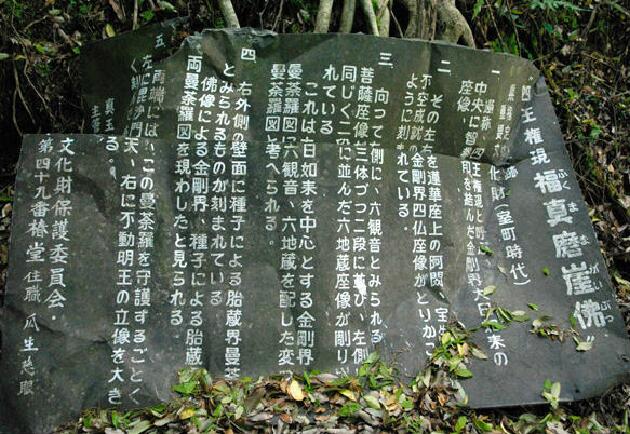 四王権現 福真磨崖佛
ふく ま ま がい ぶつ
化財(室町時代)
一 通称 四王権現と
中央に智拳印を結んだ金剛界大日如来の
座像、
二 その左右を蓮華座上の阿閦 宝生
不空成就の金剛界四仏座像がとりかこ
ように刻まれている。
三 向って右側に、六観音とみられる
菩薩座像が三体づつ二段に並び、左側
同じく二段に並んだ六地蔵座像が剛り
れている
これは大日如来を中心とする金剛界
曼荼羅図に六観音、六地蔵を配した変
曼荼羅図と考へられる。
四 右外側の壁面に種子による胎蔵界曼荼
とみられるものが刻まれている
佛像による金剛界、種子による胎蔵
両曼荼羅図を現わしたと見られる
五 両端には、この曼荼羅を守護するごとく
左に毘沙門天、右に不動明王の立像を大き
く刻 る。
真玉
文化財保護委員会・
第四十九番椿堂 住職 瓜生